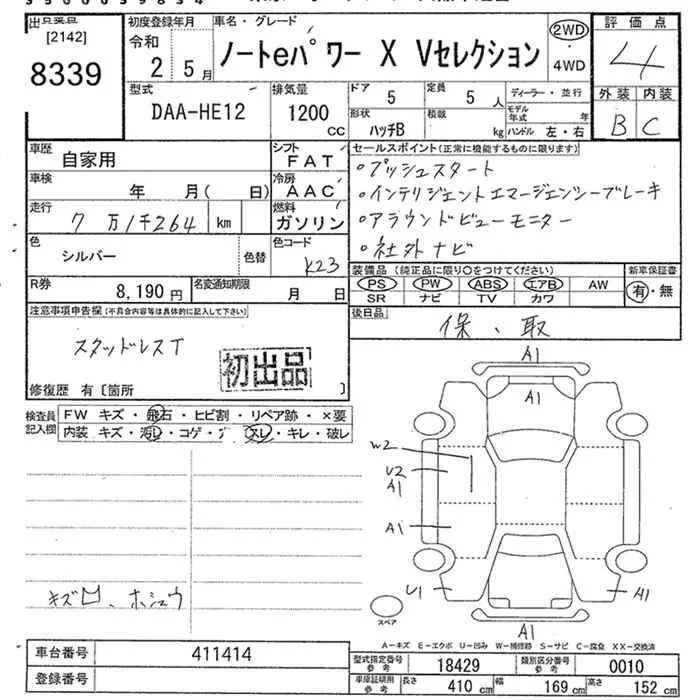 出品票
[2142]
8339
初度登録年月
令和
2 5月
車名・グレード
ノートeパワー X Vセレクション
2WD
・
4WD
評価点
4
外装 内装
B C
型式
DAA-HE12
排気量
1200
cc
ドア 5
定員 5 人
形状 ハッチB
積載 kg
ディーラー・並行
モデル年式 年
ハンドル 左・右
車歴
自家用
シフト
FAT
車検
年 月( 日)
冷房
AAC
走行
7万1千264 km
燃料
ガソリン
色
シルバー
色替
色コード
K23
R券
8,190円
名変通知期限
月 日
セールスポイント(正常に機能するものに限ります)
・プッシュスタート
・インテリジェントエマージェンシーブレーキ
・アラウンドビューモニター
・社外ナビ
装備品 (純正品に限り○をつけてください)
PS PW ABS エアB AW
SR ナビ TV カワ
新車保証書
有・無
後日品
保、取
注意事項申告欄(不具合内容等は具体的に記入して下さい)
スタッドレスT
初出品
修復歴 有〔箇所 〕
検査員
記入欄
FW キズ・飛石・ヒビ割・リペア跡・×要
内装 キズ・汚レ・コゲ・ ・スレ・キレ・破レ
キズ凹、ホシュウ
A1
A1
W2
U2
A1
A1
U1
A1
A1
スペア
A-キズ E-エクボ U-凹み W-補修跡 S-サビ C-腐食 XX-交換済
車台番号
411414
登録番号
型式指定番号
参考
18429
類別区分番号
参考
0010
車庫証明用
参考
長さ 410 cm
幅 169 cm
高さ 152 cm